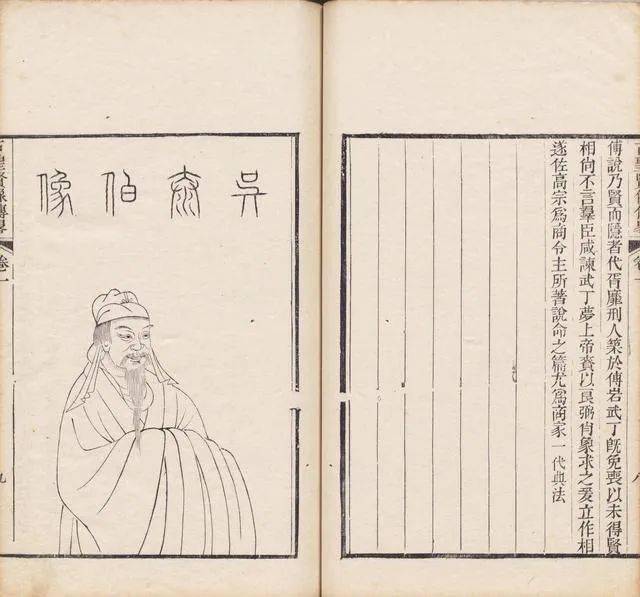 傅說乃賢而隱者代胥靡刑人築於傅岩武丁旣免喪以未得賢
相尙不言羣臣咸諫武丁夢上帝賚以良弼肖象求之爰立作相
遂佐高宗爲商令主所著說命之篇尤爲商家一代典法
吳泰伯像
古聖賢像傳畧
卷一
九